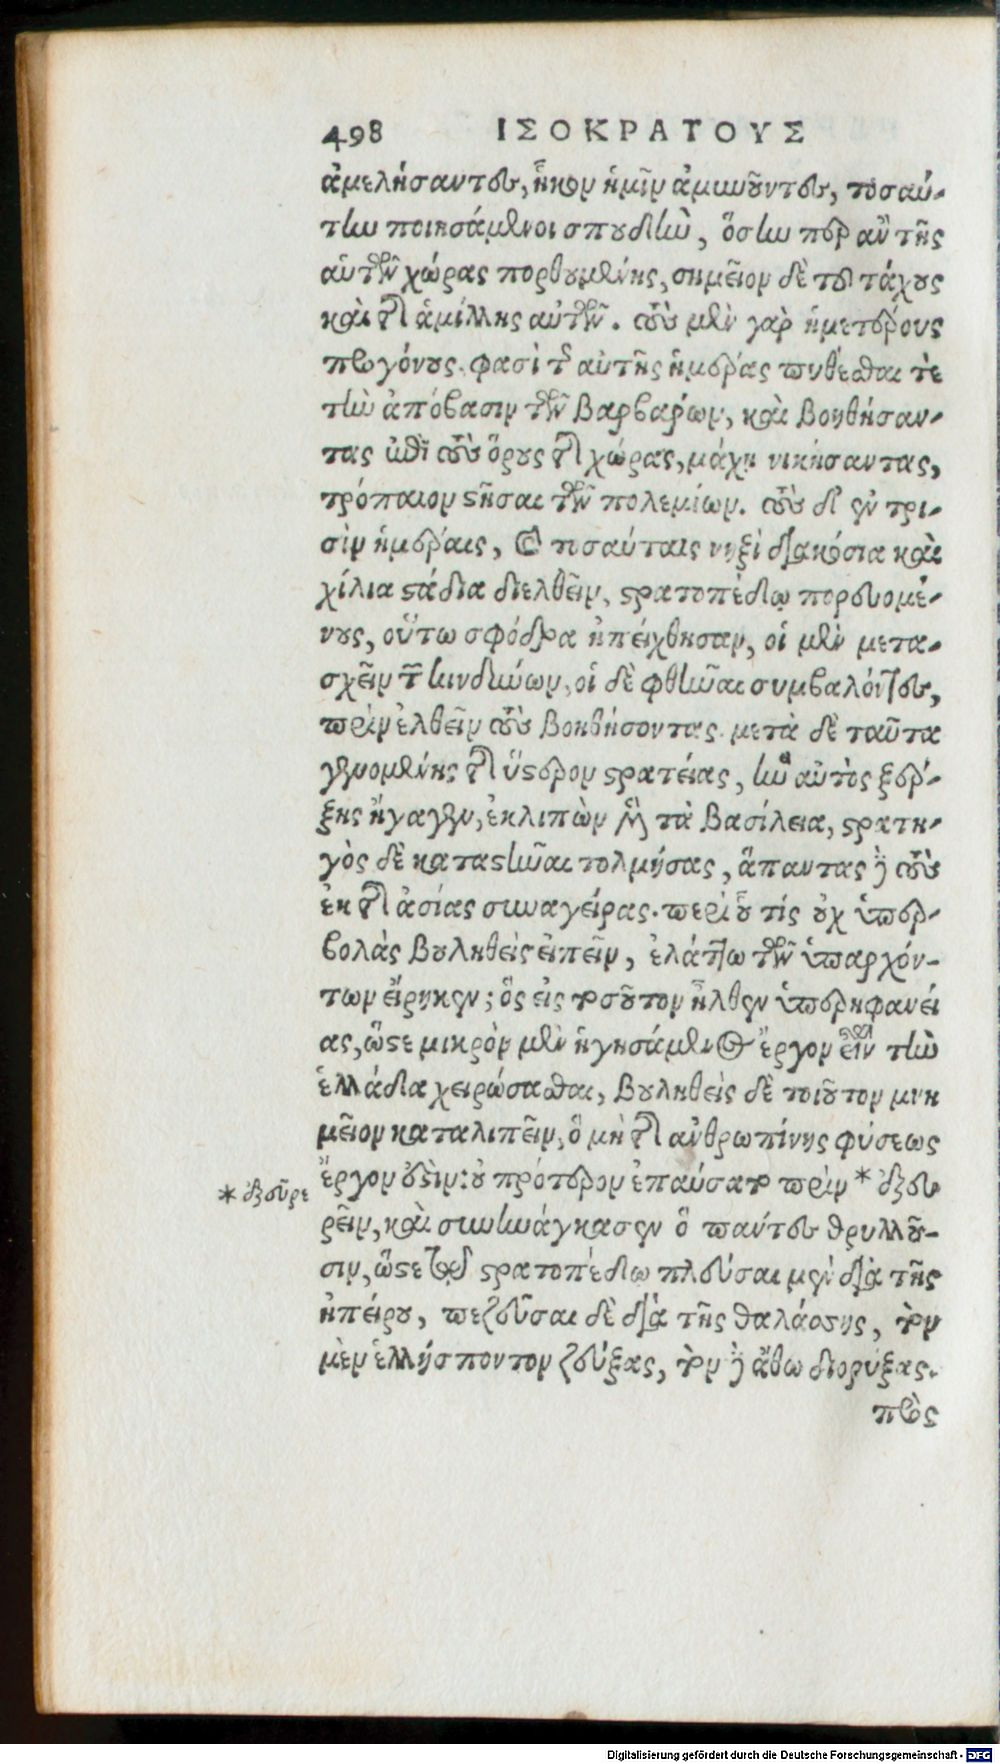 498 ΙΣΟΚΡΑΤΟΥΣ
ἀμελήσαντες, ἧκον ἡμῖν ἀμυνοῦντες, τοσαύ-
την ποιησάμενοι σπουδὴν, ὅσην περ ἂν τῆς
αὑτῶν χώρας πορθουμένης, σημεῖον δὲ τοῦ τάχους
καὶ τῆς ἁμίλλης αὐτῶν. τοὺς μὲν γὰρ ἡμετέρους
προγόνους φασὶ τῆς αὐτῆς ἡμέρας πυθέσθαι τε
τὴν ἀπόβασιν τῶν βαρβάρων, καὶ βοηθήσαν-
τας ἐπὶ τοὺς ὅρους τῆς χώρας, μάχῃ νικήσαντας,
τρόπαιον στῆσαι τῶν πολεμίων. τοὺς δ' ἐν τρι-
σὶν ἡμέραις, καὶ τοσαύταις νυξὶ διακόσια καὶ
χίλια στάδια διελθεῖν, στρατοπέδῳ πορευομέ-
νους, οὕτω σφόδρα ἠπείχθησαν, οἱ μὲν μετα-
σχεῖν τῶν κινδύνων, οἱ δὲ φθῆναι συμβαλόντες,
πρὶν ἐλθεῖν τοὺς βοηθήσοντας. μετὰ δὲ ταῦτα
γενομένης τῆς ὕστερον στρατείας, ἣν αὐτὸς ξέρ-
ξης ἤγαγεν, ἐκλιπὼν μὲν τὰ βασίλεια, στρατη-
γὸς δὲ καταστῆναι τολμήσας, ἅπαντας δὲ τοὺς
ἐκ τῆς ἀσίας συναγείρας. περὶ οὗ τίς οὐχ ὑπερ-
βολὰς βουληθεὶς εἰπεῖν, ἐλάττω τῶν ὑπαρχόν-
των εἴρηκεν; ὃς εἰς τοσοῦτον ἦλθεν ὑπερηφανεί
ας, ὥστε μικρὸν μὲν ἡγησάμενος ἔργον εἶναι τὴν
ἑλλάδα χειρώσασθαι, βουληθεὶς δὲ τοιοῦτον μνη
μεῖον καταλιπεῖν, ὃ μὴ τῆς ἀνθρωπίνης φύσεως
ἔργον ἐστίν: οὐ πρότερον ἐπαύσατο πρὶν * ἐξευ
* ἐξεῦρε
ρεῖν, καὶ συνηνάγκασεν ὃ πάντες θρυλλοῦ-
σιν, ὥστε τῷ στρατοπέδῳ πλεῦσαι μὲν διὰ τῆς
ἠπείρου, πεζεῦσαι δὲ διὰ τῆς θαλάσσης, τὸν
μὲν ἑλλήσποντον ζεύξας, τὸν δὲ ἄθω διορύξας.
πρὸς